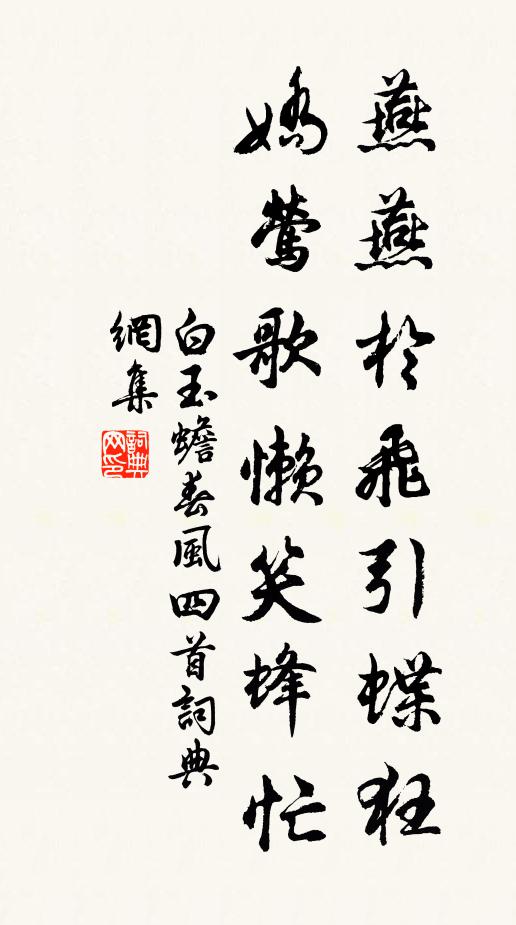 燕燕於飛引蝶狂
嬌鶯歌懶笑蜂忙
白玉蟾春風四首詞典
網集
詞典網印